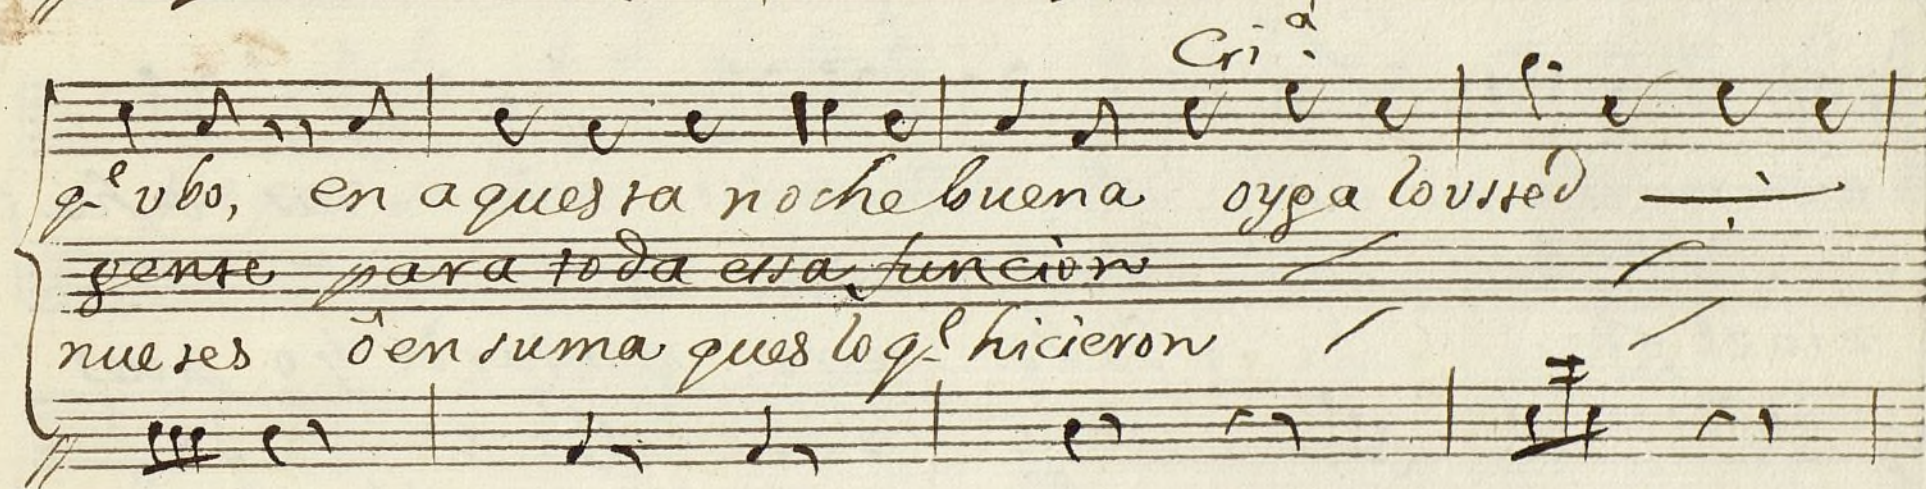 Cri.ª
q.ᵉ vbo, en aquesta noche buena oyga lo vsted
gente para toda essa función
nueses ô en suma ques lo q.ᵉ hicieron